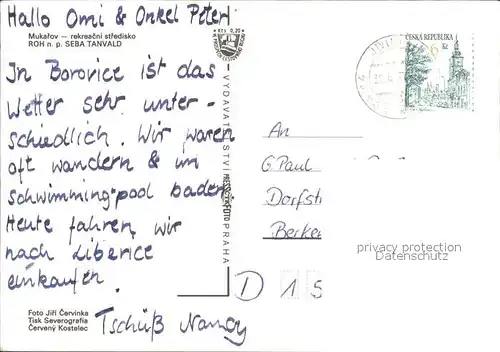 Hallo Omi & Onkel Peter!
Mukařov – rekreační středisko
ROH n. p. SEBA TANVALD
In Borovice ist das
Wetter sehr unter-
schiedlich. Wir waren
oft wandern & im
Schwimmingpool baden.
Heute fahren wir
nach Liberice
einkaufen.
Tschüß Nancy
Foto Jiří Červinka
Tisk Severografia
Červený Kostelec
Kčs 0,20
VYDAVATELSTVÍ
PRAHA
ČESKÁ REPUBLIKA
6 Kč
An
G Paul
Dorfstr
Berke
D 1 S
privacy protection
Datenschutz